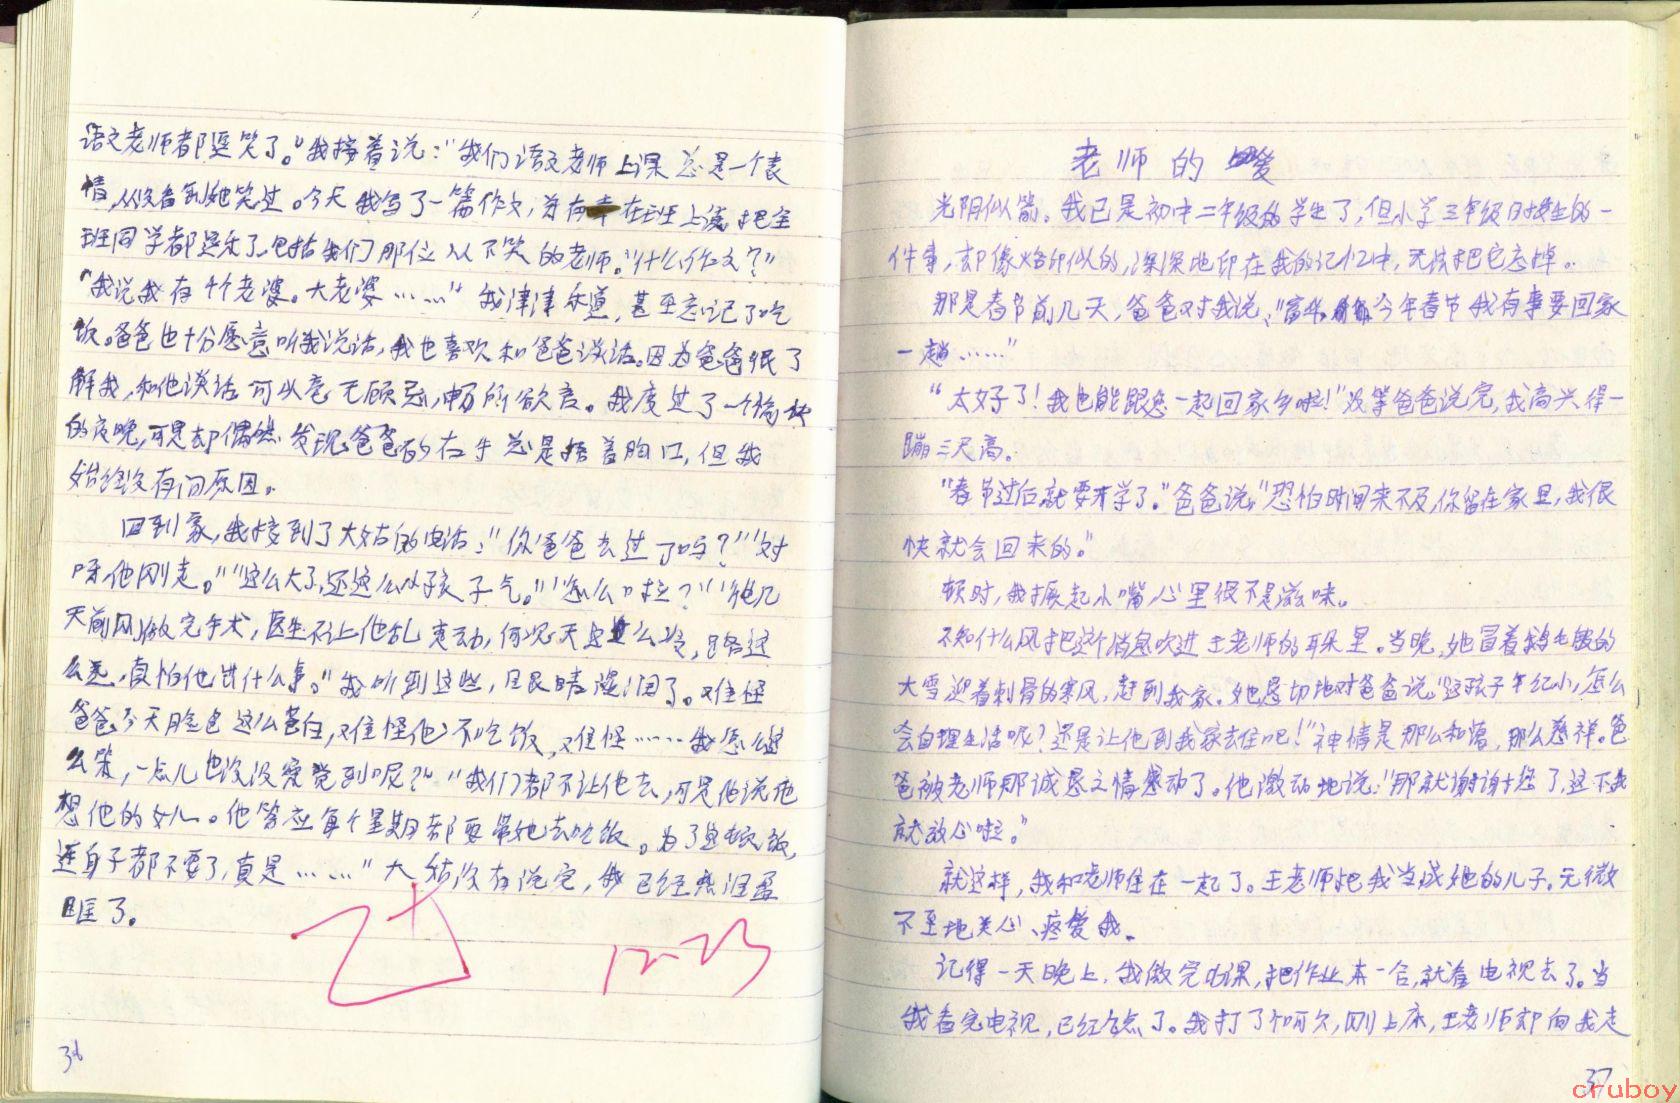 语文老师都逗笑了。”我接着说：“我们语文老师上课总是一个表
情，从没看到她笑过。今天我写了一篇作文，并有幸在班上读，把全
班同学都逗乐了，包括我们那位从不笑的老师。”“什么作文？”
“我说我有4个老婆。大老婆……”我津津乐道，甚至忘记了吃
饭。爸爸也十分愿意听我说话，我也喜欢和爸爸谈话。因为爸爸很了
解我，和他谈话可以毫无顾忌，畅所欲言。我度过了一个愉快
的夜晚，可是却偶然发现爸爸的右手总是捂着胸口，但我
始终没有问原因。
回到家，我接到了大姑的电话：“你爸爸去过了吗？”“对
呀，他刚走。”“这么大了，还这么小孩子气。”“怎么啦？”“他几
天前刚做完手术，医生不让他乱走动，何况天这么冷，路这
么远，真怕他出什么事。”我听到这些，眼睛湿润了。难怪
爸爸今天脸色这么苍白，难怪他不吃饭，难怪……我怎么这
么笨，一点儿也没没察觉到呢？“我们都不让他去，可是他说他
想他的女儿。他答应每个星期都要带她去吃饭。为了这顿饭，
连身子都不要了，真是……”大姑没有说完，我已经热泪盈
眶了。
12-23
36
老师的爱
光阴似箭。我已是初中二年级的学生了，但小学三年级时发生的一
件事，却像烙印似的，深深地印在我的记忆中，无法把它忘掉。
那是春节前几天，爸爸对我说：“今年春节我有事要回家
一趟……”
“太好了！我也能跟您一起回家乡啦！”没等爸爸说完，我高兴得一
蹦三尺高。
“春节过后就要开学了。”爸爸说，“恐怕时间来不及，你留在家里，我很
快就会回来的。”
顿时，我撅起小嘴，心里很不是滋味。
不知什么风把这个消息吹进王老师的耳朵里。当晚，她冒着鹅毛般的
大雪，迎着刺骨的寒风，赶到我家。她恳切地对爸爸说：“这孩子年纪小，怎么
会自理生活呢？还是让他到我家去住吧！”神情是那么和蔼，那么慈祥。爸
爸被老师那诚恳之情感动了。他激动地说：“那就谢谢您了，这下我
就放心啦。”
就这样，我和老师住在一起了。王老师把我当成她的儿子。无微
不至地关心、疼爱我。
记得一天晚上，我做完功课，把作业本一合，就看电视去了。当
我看完电视，已经点了。我打了个呵欠，刚上床，王老师却向我走
37
cruboy